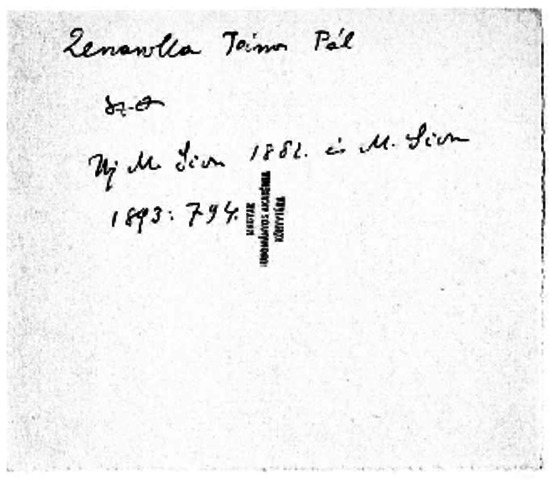 János Pál
Uj M. Sion 1882. és M. Sion
1893: 794.
MAGYAR
TUDOMÁNYOS AKADÉMIA
KÖNYVTÁRA